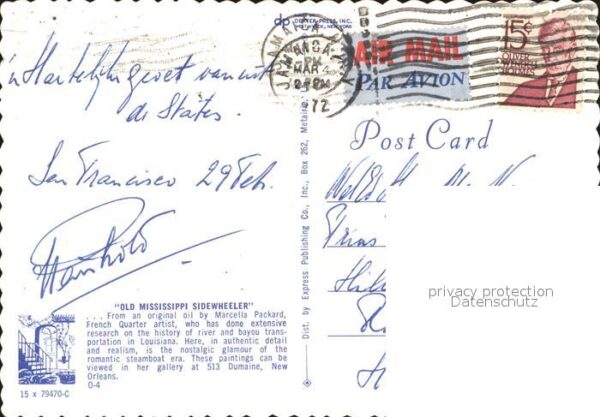 dp DEXTER PRESS, INC.
WEST NYACK, NEW YORK
JAMAICA
PM
MAR
1972
AIR MAIL
PAR AVION
15¢
OLIVER
WENDELL
HOLMES
'n Hartelijk groet vanuit
de States.
San Francisco 29 Feb.
Post Card
Dist. by Express Publishing Co., Inc., Box 262, Metairie,
privacy protection
Datenschutz
"OLD MISSISSIPPI SIDEWHEELER"
. . . From an original oil by Marcella Packard,
French Quarter artist, who has done extensive
research on the history of river and bayou trans-
portation in Louisiana. Here, in authentic detail
and realism, is the nostalgic glamour of the
romantic steamboat era. These paintings can be
viewed in her gallery at 513 Dumaine, New
Orleans.
O-4
15 x 79470-C